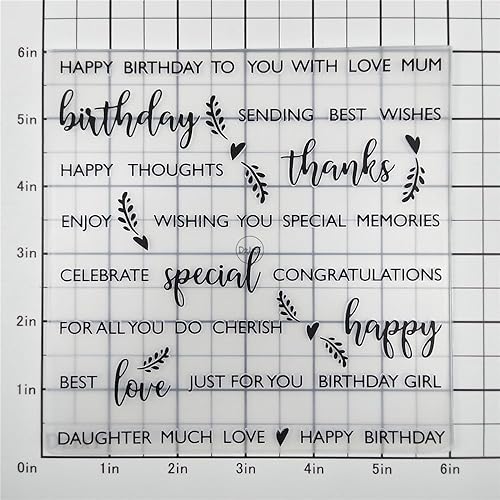 6in
HAPPY BIRTHDAY TO YOU WITH LOVE MUM
5in
birthday SENDING BEST WISHES
HAPPY THOUGHTS thanks
4in
ENJOY WISHING YOU SPECIAL MEMORIES
3in
CELEBRATE special CONGRATULATIONS
2in
FOR ALL YOU DO CHERISH happy
1in
BEST love JUST FOR YOU BIRTHDAY GIRL
DAUGHTER MUCH LOVE HAPPY BIRTHDAY
0in 1in 2in 3in 4in 5in 6in